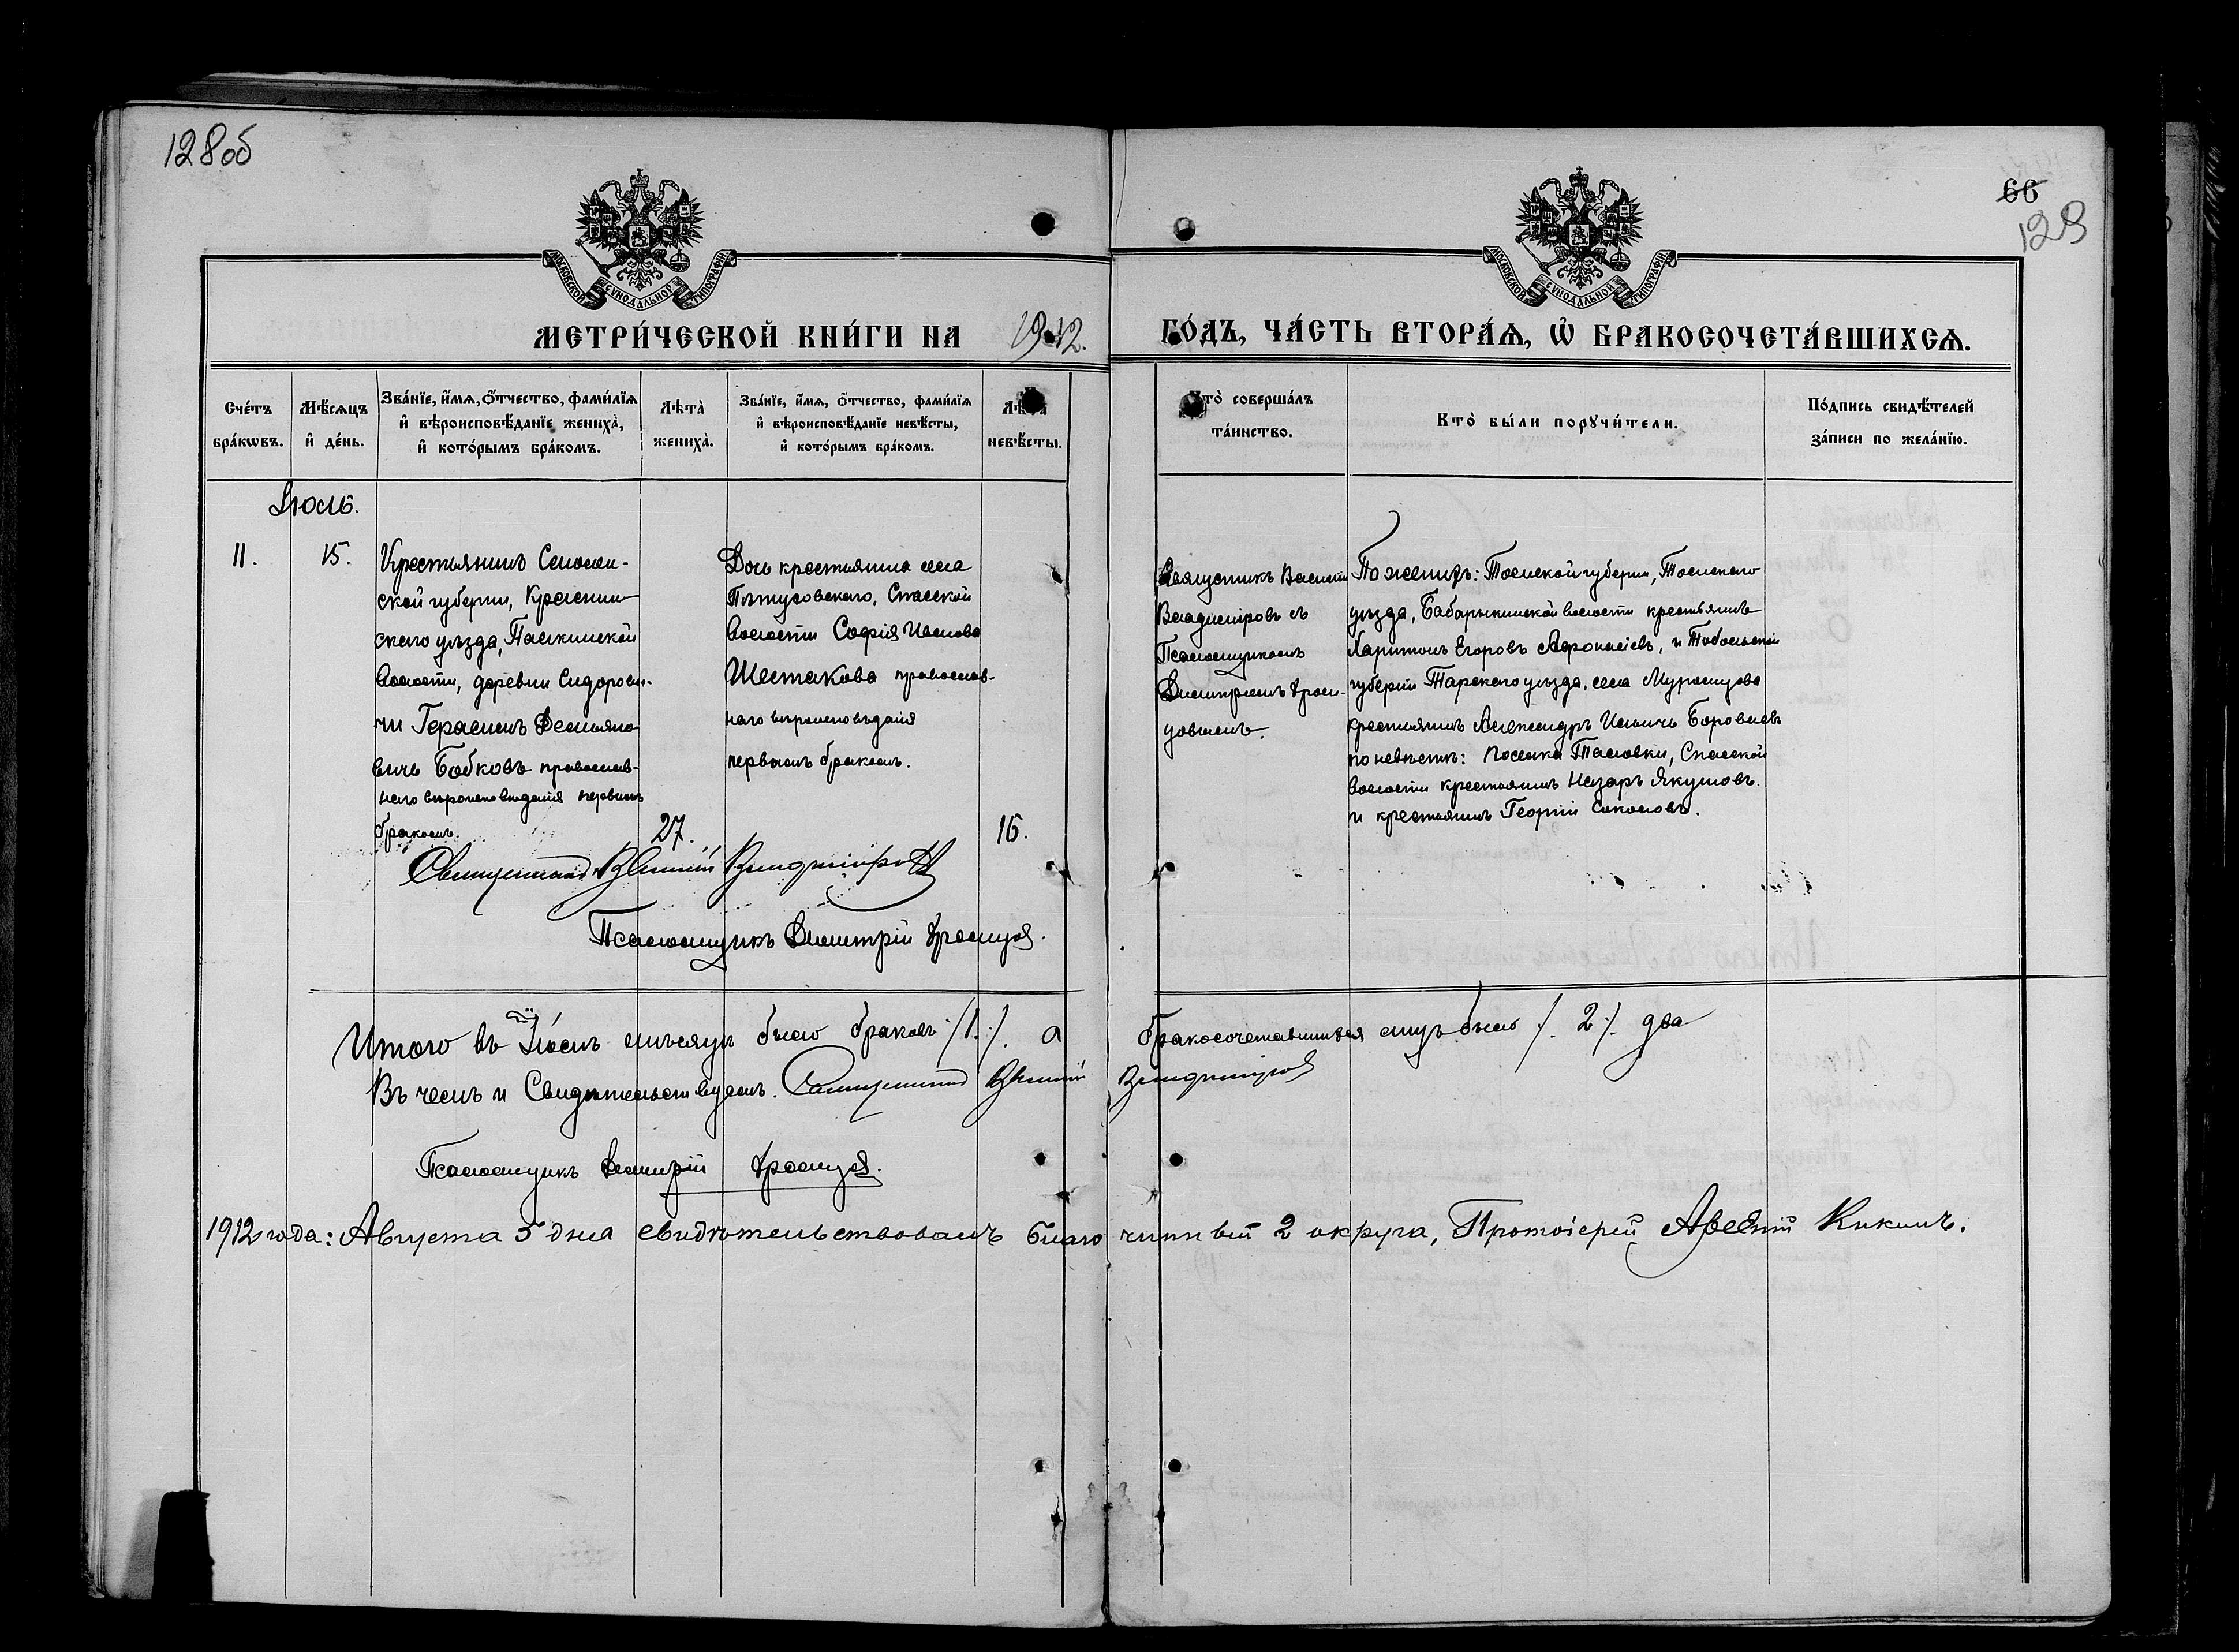 128об
66
123
МОСКОВСКОЙ СѴНОДАЛЬНОЙ ТИПОГРАФІИ
МОСКОВСКОЙ СѴНОДАЛЬНОЙ ТИПОГРАФІИ
МЕТРИ́ЧЕСКОЙ КНИ́ГИ НА 1912. ГО́ДЪ, ЧА́СТЬ ВТОРА́Я, Ѡ҆ БРАКОСОЧЕТА́ВШИХСѦ.
Сче́тъ бра́кѡвъ.
Мѣ́сѧцъ и҆ де́нь.
Зва́нїе, и҆́мѧ, ѻ҆́тчество, фами́лїѧ и҆ вѣроисповѣ́данїе жениха̀, и҆ кото́рымъ бра́комъ.
Лѣта̀ жениха̀.
Зва́нїе, и҆́мѧ, ѻ҆́тчество, фами́лїѧ и҆ вѣроисповѣ́данїе невѣ́сты, и҆ кото́рымъ бра́комъ.
Лѣта̀ невѣ́сты.
Кто̀ соверша́лъ та́инство.
Кто̀ бы́ли порꙋчи́тели.
По́дпись свидѣ́телей за́писи по жела́нїю.
Іюль.
11.
15.
Крестьянинъ Смолен-
ской губерніи, Краснин-
скаго уѣзда, Палкинской
волости, деревни Сидорови-
чи Герасимъ Демьяно-
вичъ Бобковъ православ-
наго вѣроисповѣданія первымъ
бракомъ.
27.
Дочь крестьянина села
Пѣтуховскаго, Спасской
волости Софія Иванова
Шестакова православ-
наго вѣроисповѣданія
первымъ бракомъ.
16.
Священникъ Василій
Владиміровъ съ
Псаломщикомъ
Димитріемъ
По женихѣ: Томской губерніи, Томскаго
уѣзда, Бабарыкинской волости крестьянинъ
Харитонъ Егоровъ Афонасіевъ, и Тобольской
губерніи Тарскаго уѣзда, села Муромцова
крестьянинъ Александръ Ильичъ Боровлевъ
по невѣстѣ: поселка Таловки, Спасской
волости крестьянинъ Назаръ Якушовъ.
и крестьянинъ Георгій Соколовъ.
Священникъ Василій Владиміровъ
Псаломщикъ Димитрій
Итого въ Іюлѣ мѣсяцѣ было браковъ /1./. а бракосочетавшихся лицъ было /. 2 /. два
Въ чемъ и Свидѣтельствуемъ. Священникъ Василій Владиміровъ
Псаломщикъ Димитрій
1912 года: Августа 5 дня свидѣтельствовалъ благочинный 2 округа, Протоіерей Арсеній Кикинъ.